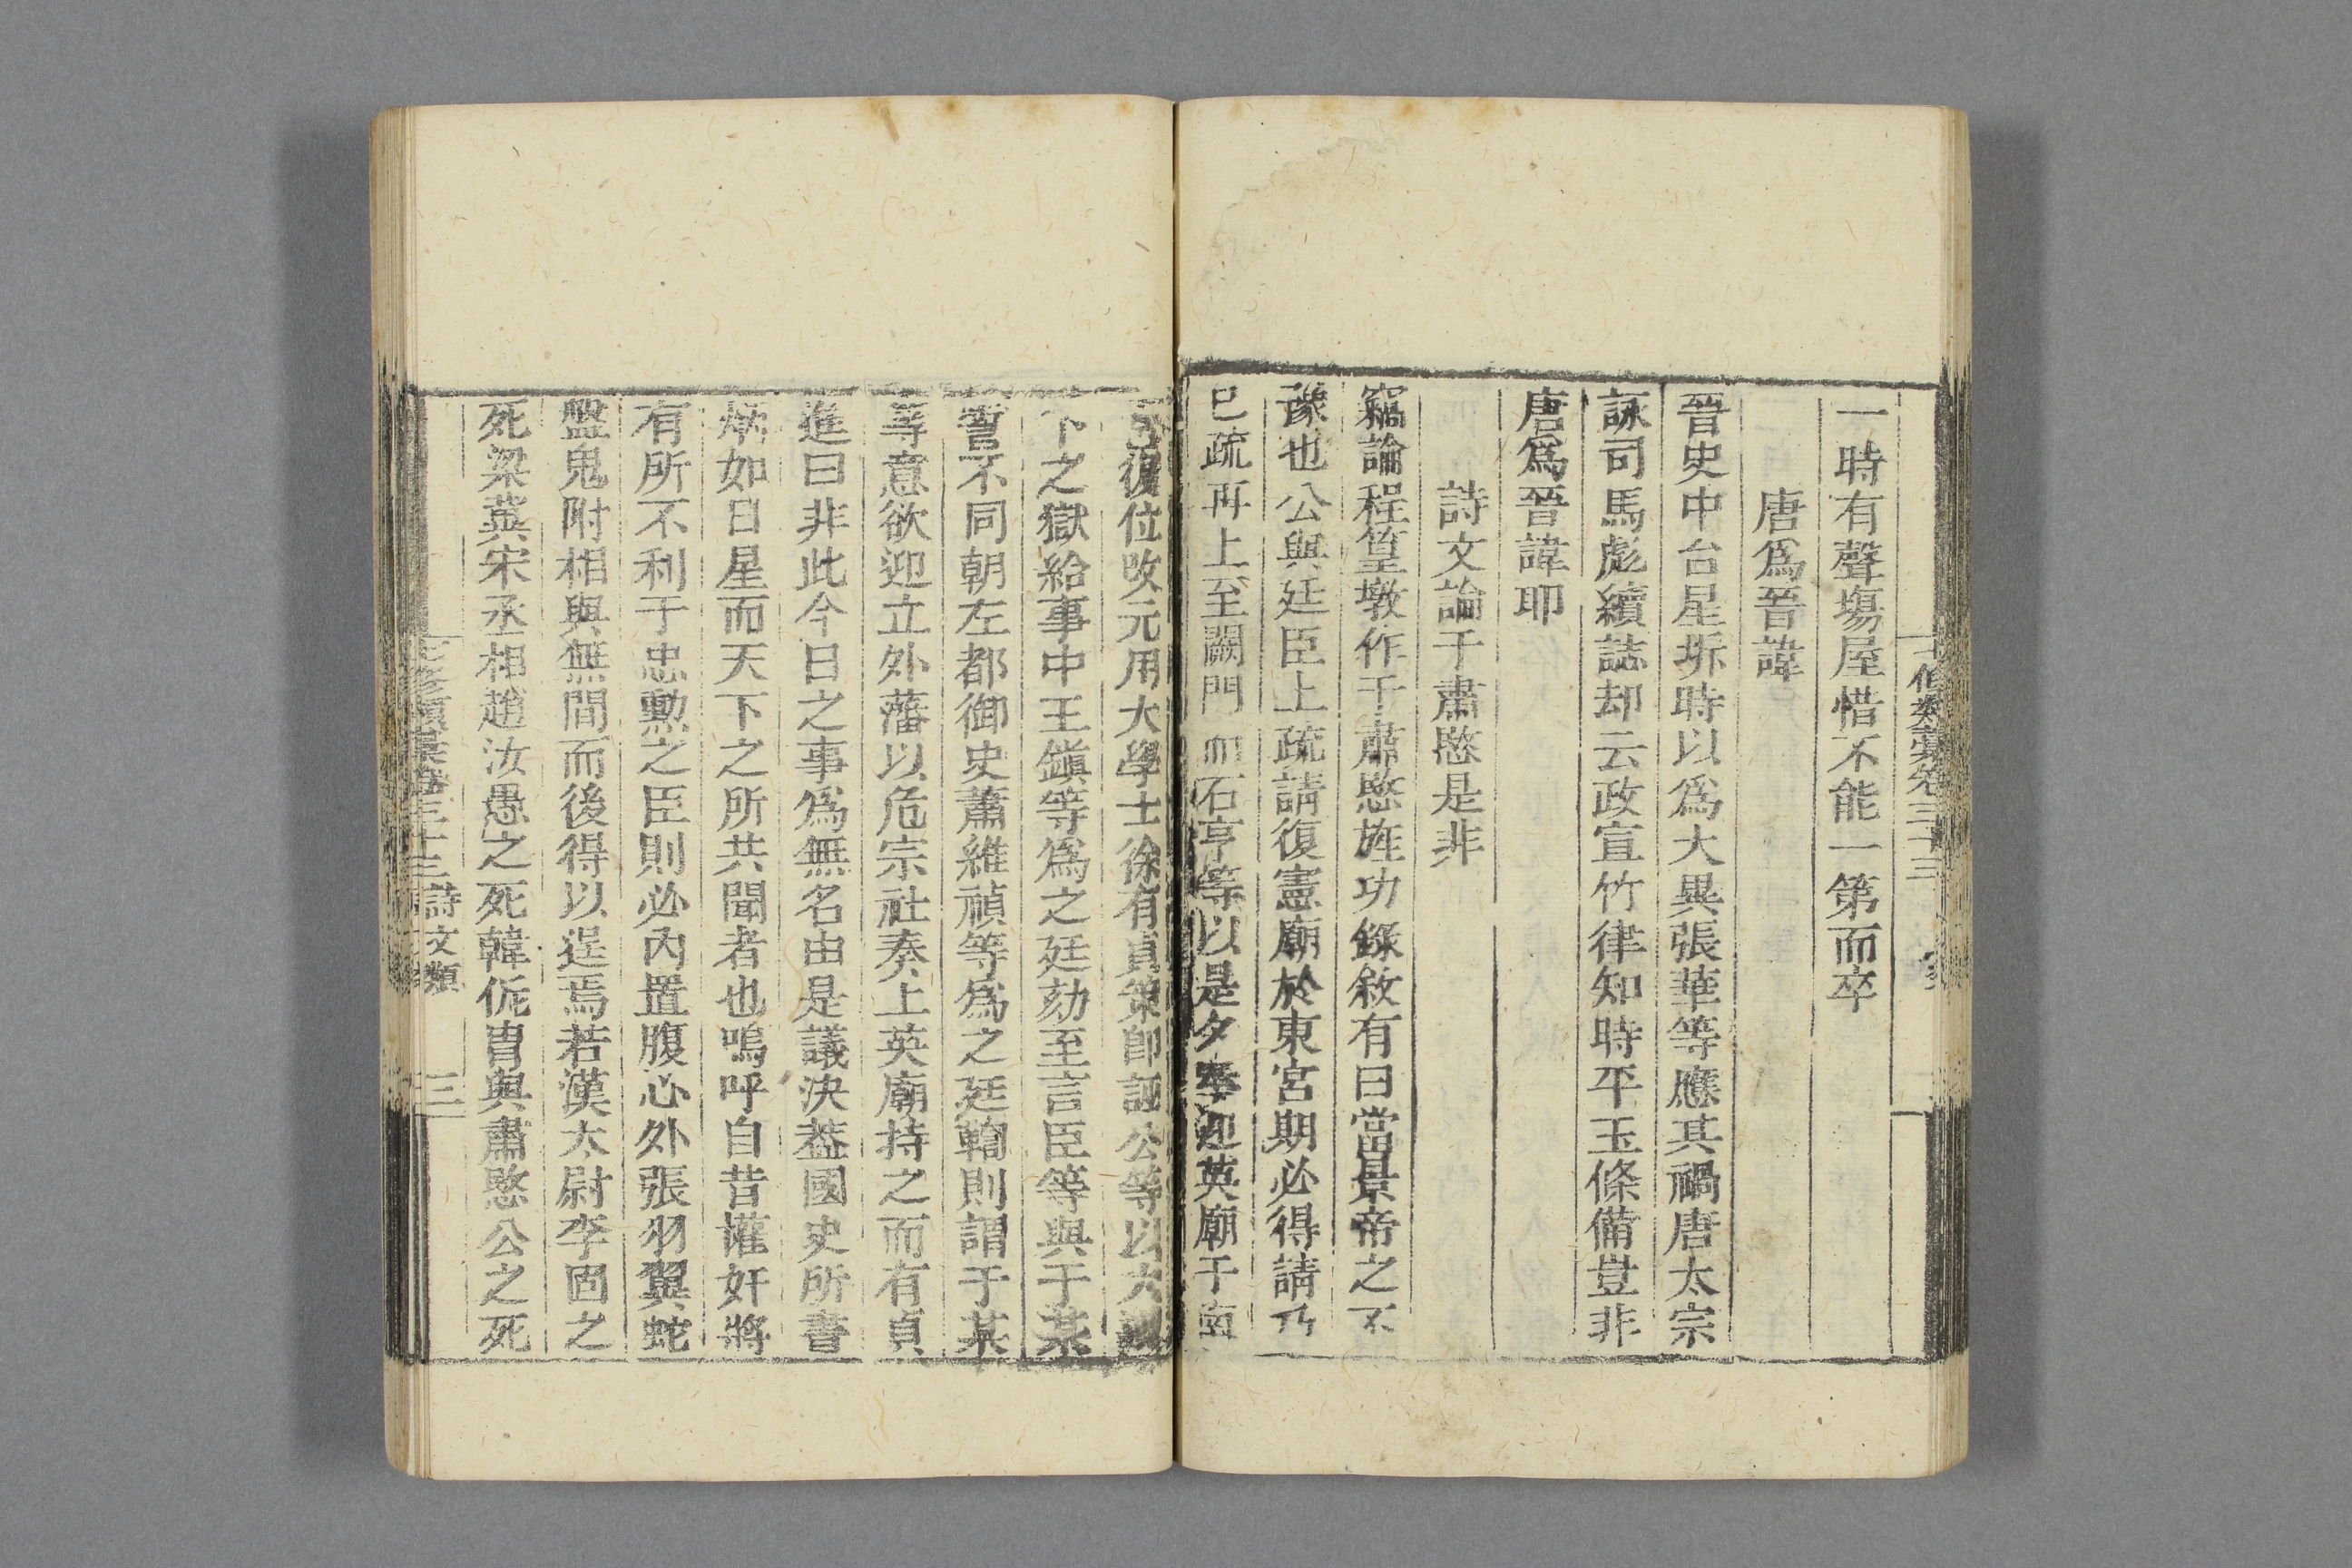 一時有聲塲屋惜不能一第而卒
唐爲晉諱
晉史中台星坼時以爲大異張華等應其禍唐太宗
詠司馬彪續誌却云政宣竹律知時平玉條備豈非
唐爲晉諱耶
詩文論于肅愍是非
竊論程篁墩作于肅愍旌功錄敘有曰當景帝之不
豫也公與廷臣上疏請復憲廟於東宮期必得請乃
已疏再上至闕門而石亨等以是夕奉迎英廟于南
宮復位改元用大學士徐有貞策卽誣公等以大逆
下之獄給事中王鎭等爲之廷劾至言臣等與于某
誓不同朝左都御史蕭維禎等爲之廷鞫則謂于某
等意欲迎立外藩以危宗社奏上英廟持之而有貞
進曰非此今日之事爲無名由是議決葢國史所書
炳如日星而天下之所共聞者也嗚呼自昔權奸將
有所不利于忠勲之臣則必內置腹心外張羽翼蛇
盤鬼附相與無間而後得以逞焉若漢太尉李固之
死梁冀宋丞相趙汝愚之死韓侂胄與肅愍公之死
七修類稾卷三十三 詩文類 三